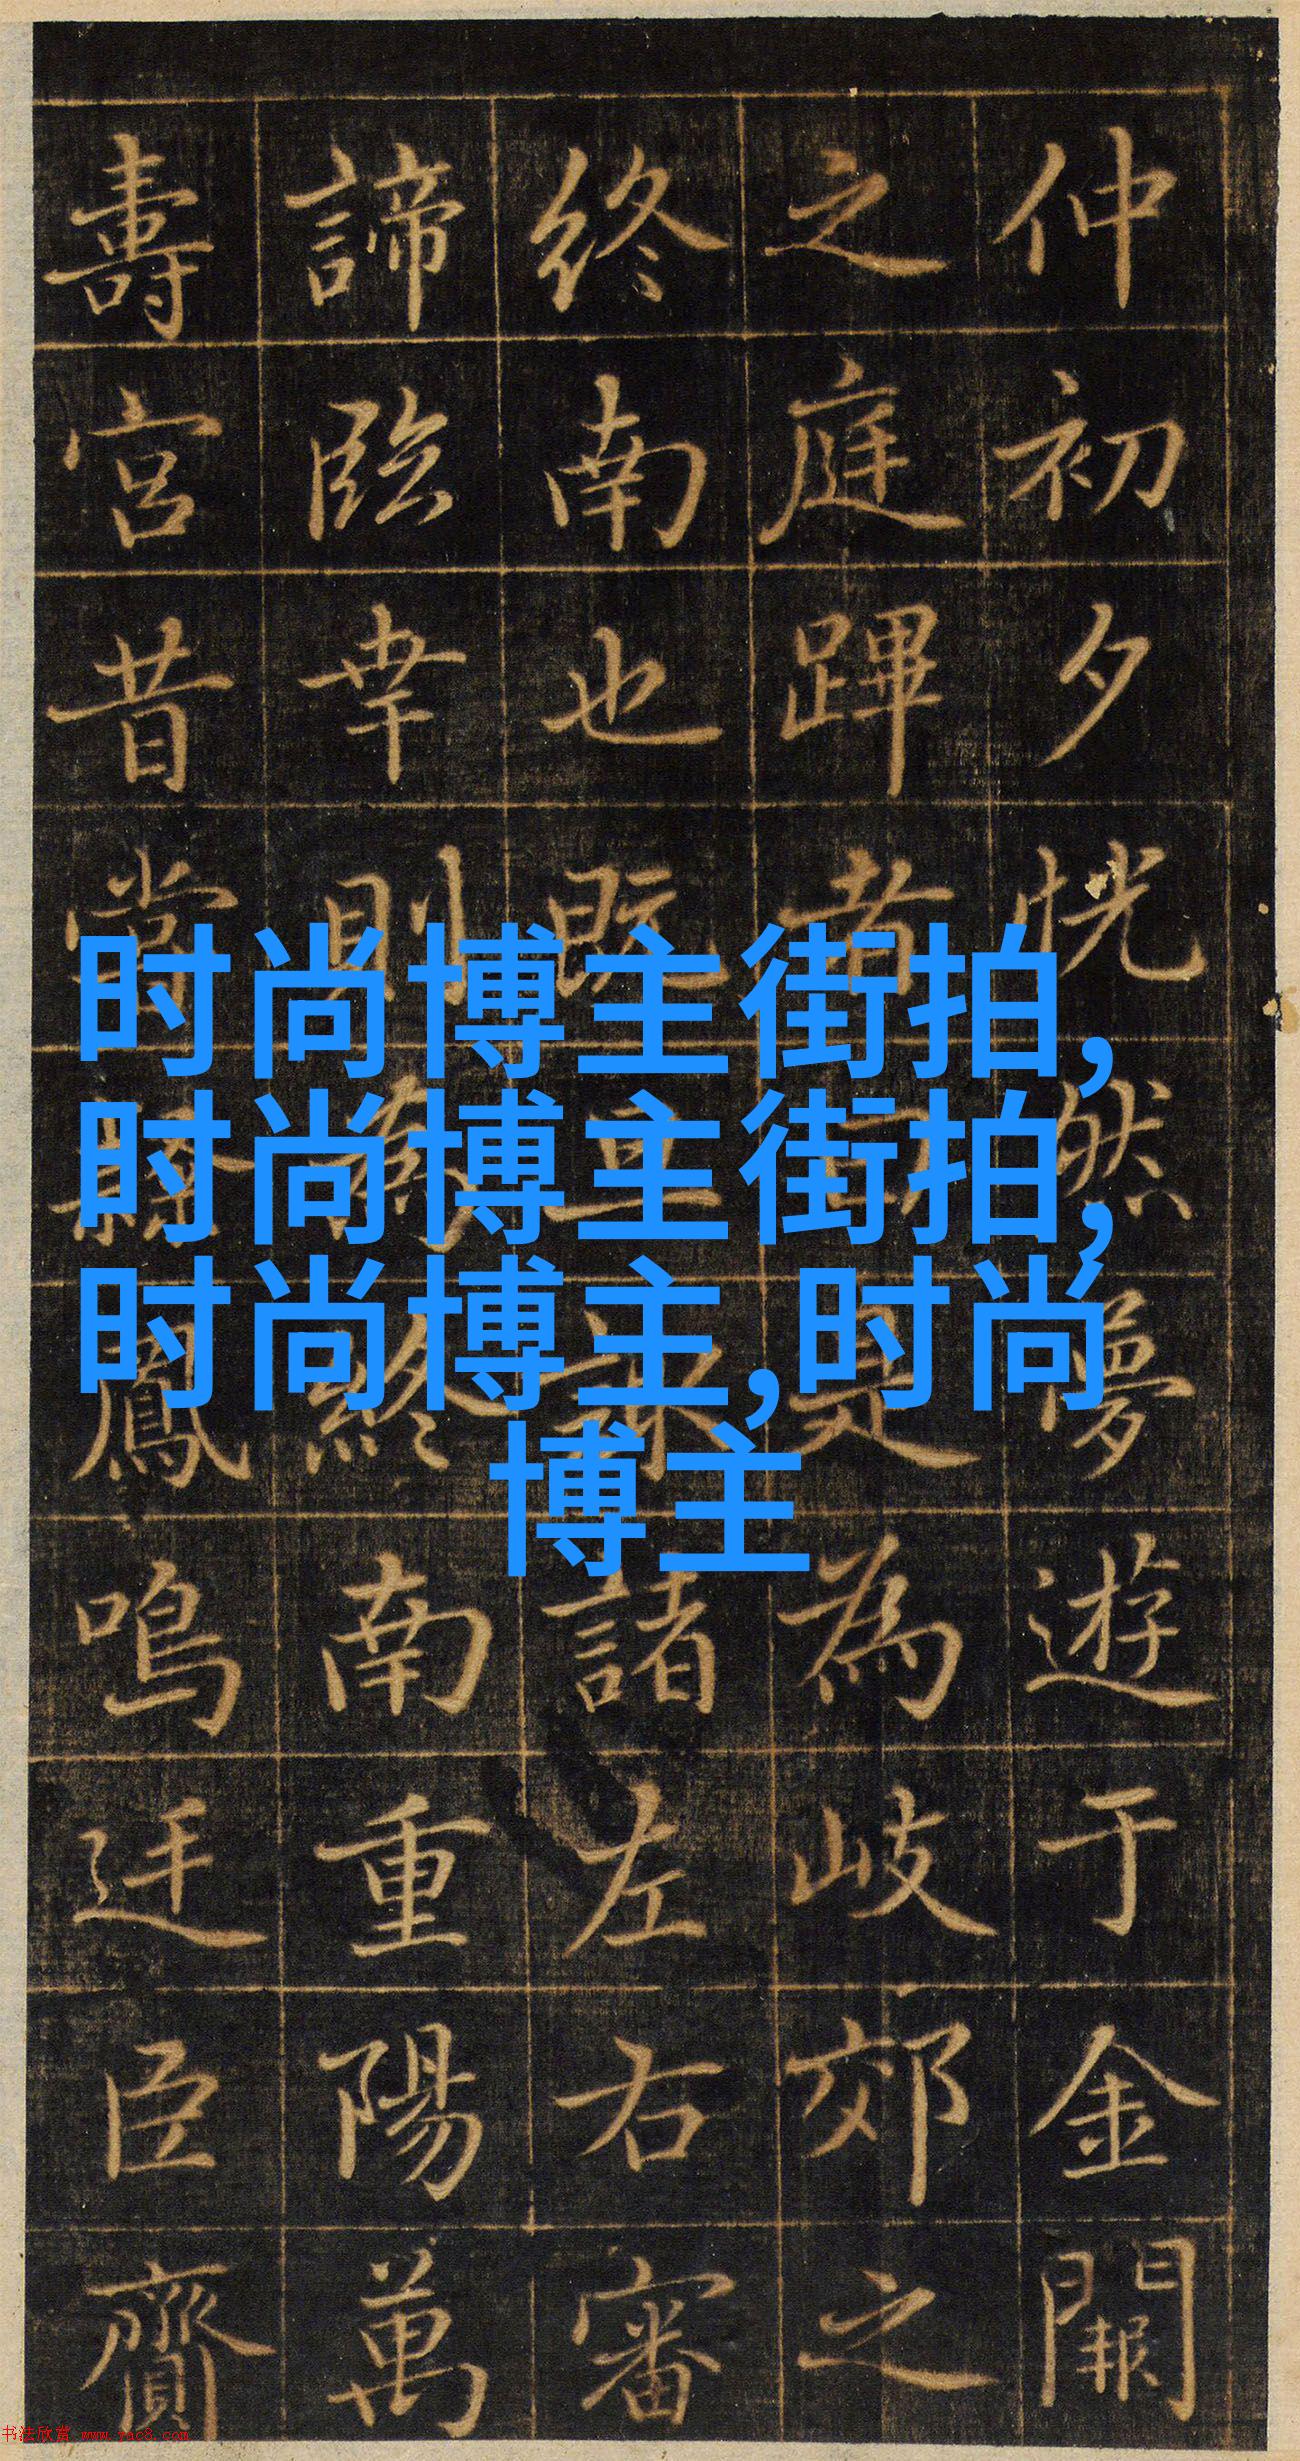 仲初夕恍然夢遊于金闕
之庭蹕者曰是為岐郊之
終南也既諸左右審
諦臨幸則為終南重陽萬
壽宮昔鳳鳴迋臣齎
时尚博主街拍,
时尚博主街拍,
时尚博主,时尚
博主
书法欣赏 www.yac8.com